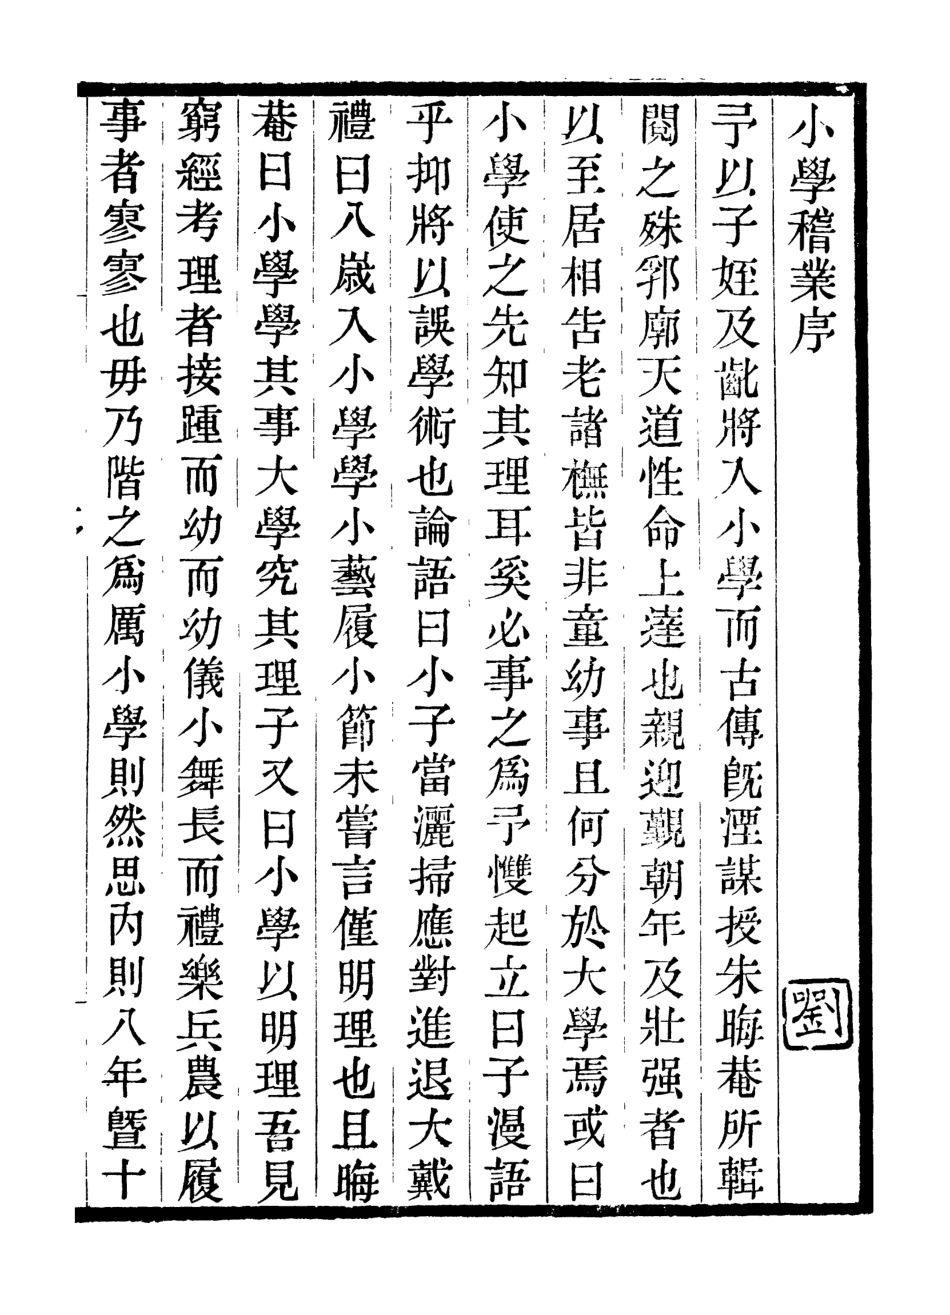 小學稽業序
劉
予以子姪及齔將入小學而古傳旣湮謀授朱晦菴所輯
閱之殊郛廓天道性命上達也親迎覲朝年及壯强者也
以至居相告老諸橅皆非童幼事且何分於大學焉或曰
小學使之先知其理耳奚必事之爲予戄起立曰子漫語
乎抑將以誤學術也論語曰小子當灑掃應對進退大戴
禮曰入歲入小學學小藝履小節未嘗言僅明理也且晦
菴曰小學學其事大學究其理子又曰小學以明理吾見
窮經考理者接踵而幼而幼儀小舞長而禮樂兵農以履
事者寥寥也毋乃階之爲厲小學則然思內則八年曁十